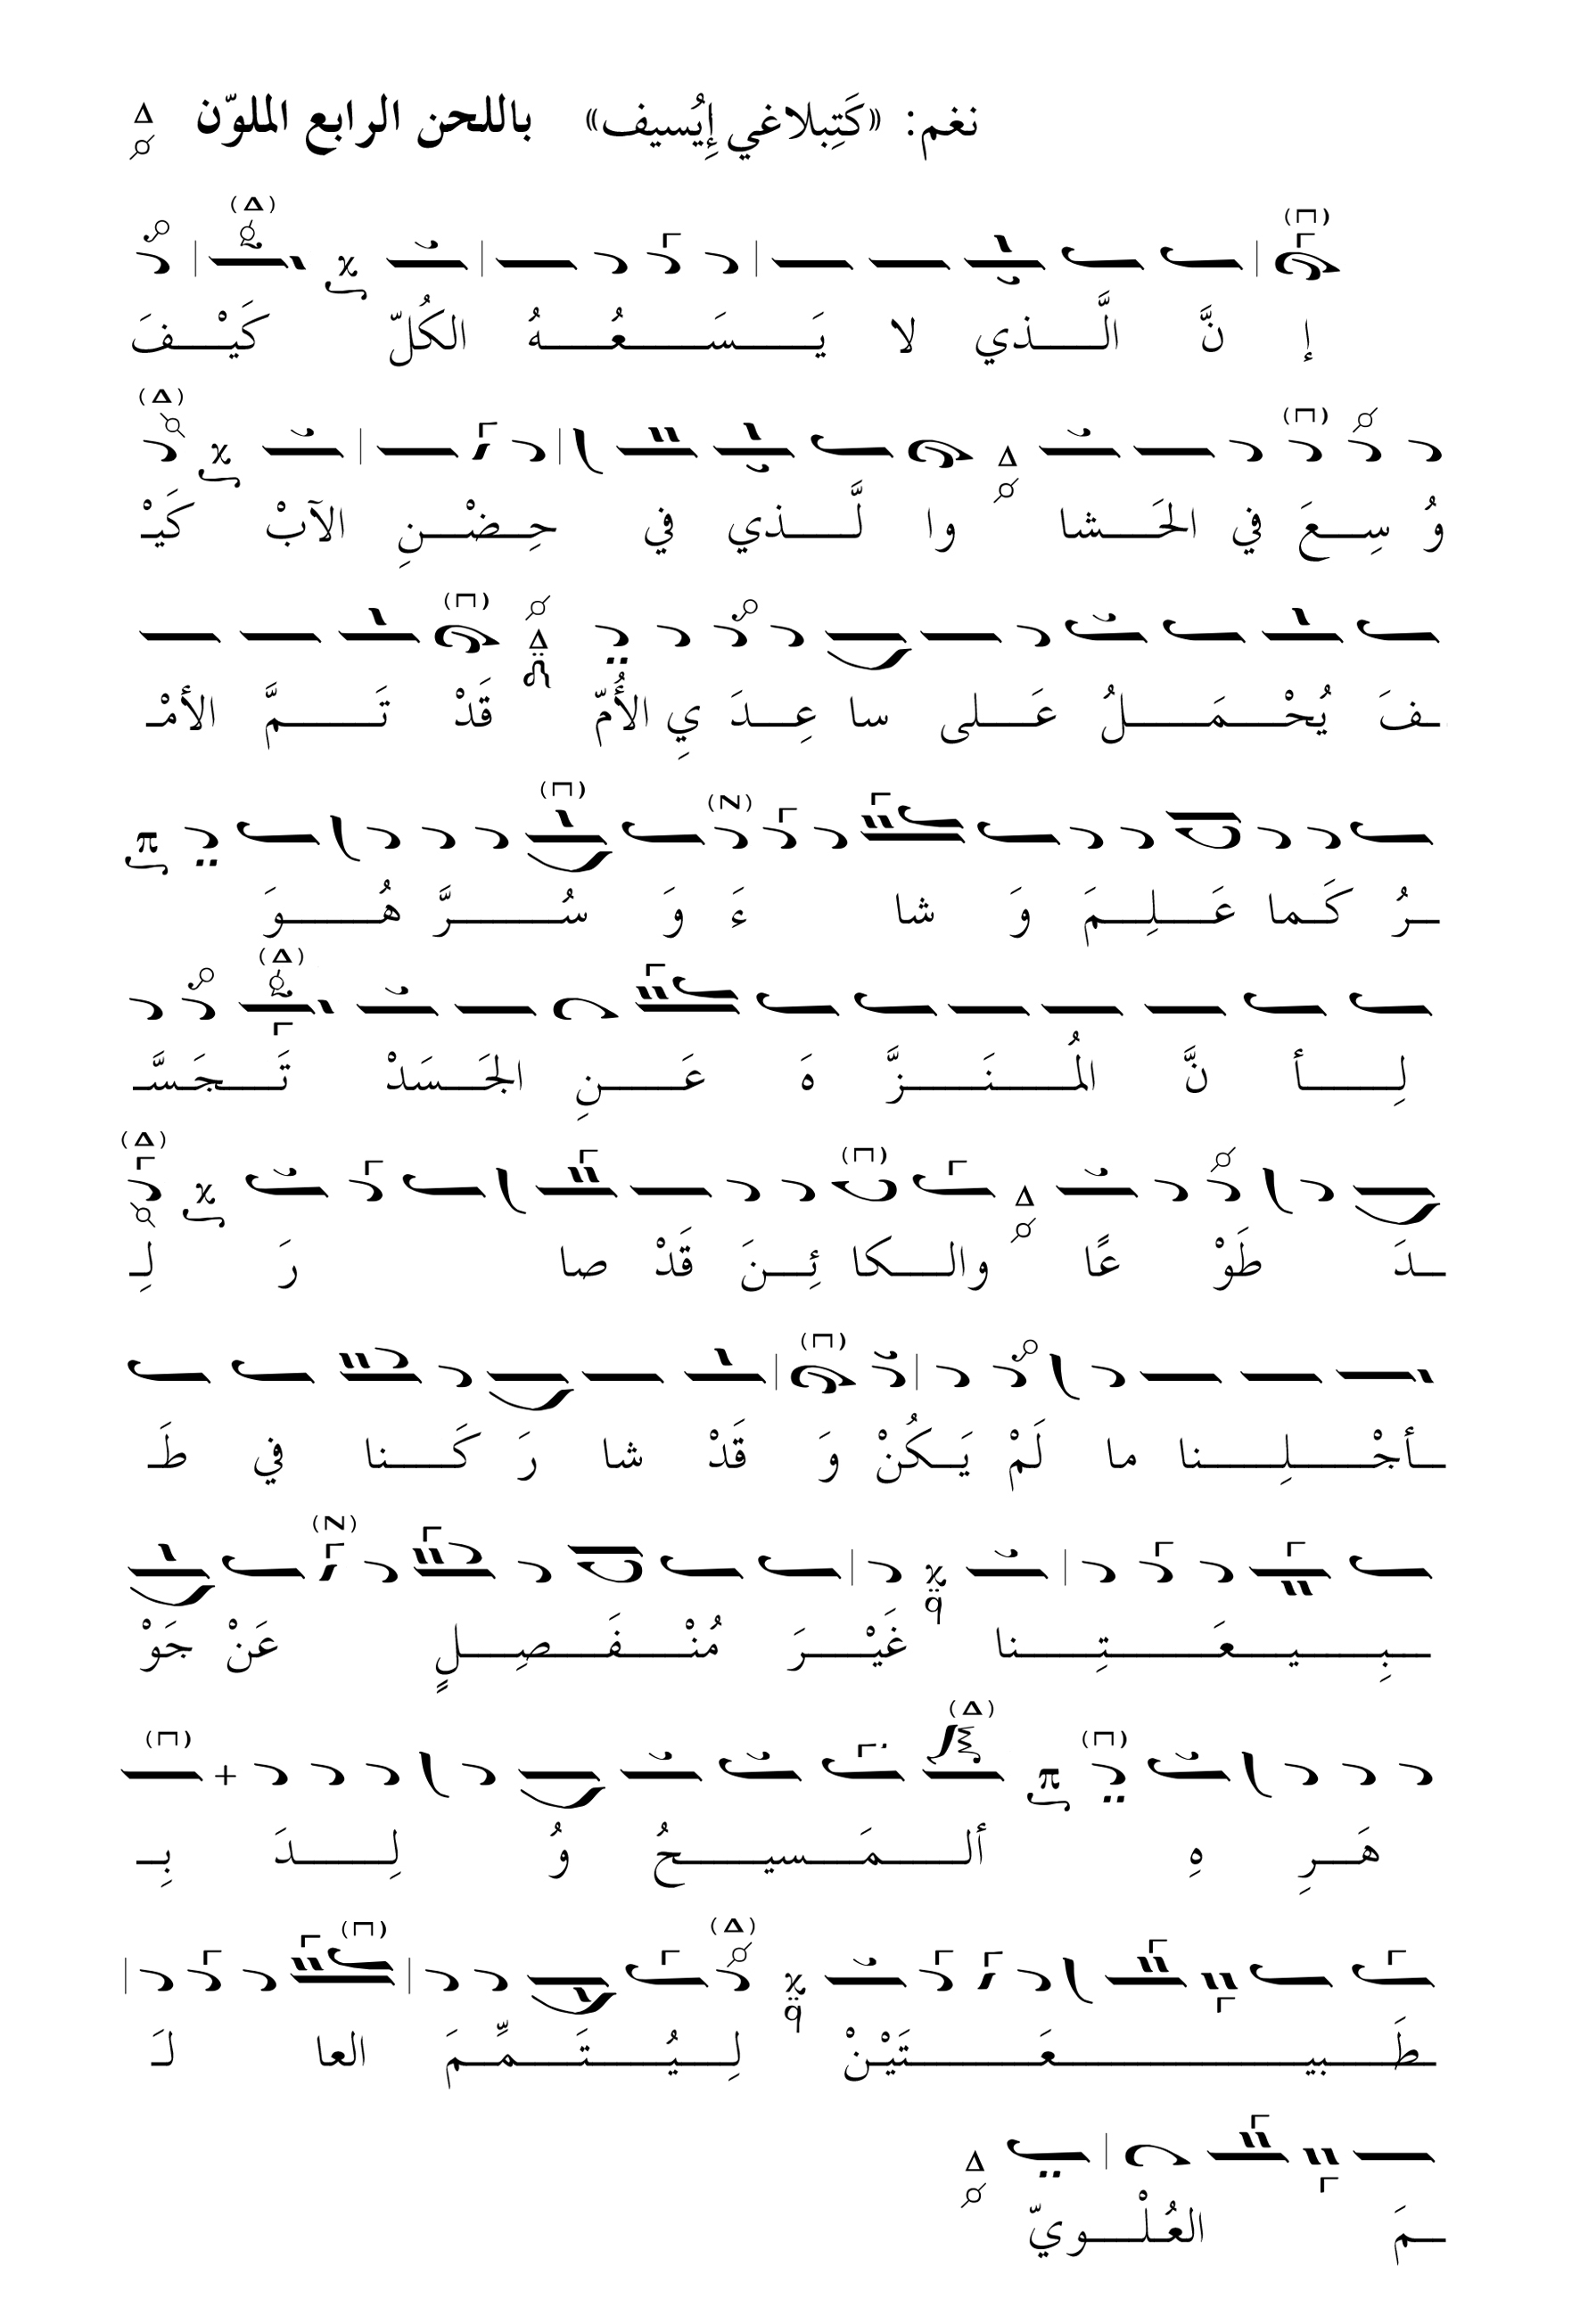 نغم: «كَتِبلاغي إِيُسيف» باللحن الرابع الملوّن
إ نَّ الَّـــذي لا يَـــسَـــعُـــهُ الكُلّ كَيْـــفَ
وُ سِـــعَ في الحَـــشا وا لَّـــذي في حِـــضْـــنِ الآبْ كَيْـ
ـفَ يُحْـــمَـــلُ عَـــلى سا عِـــدَ يِ الأُمّ قَدْ تَـــمَّ الأمْـ
ـرُ كَـــما عَـــلِـــمَ وَ شا ءَ وَ سُـــرَّ هُـــوَ
لِـــأ نَّ المُـــنَـــزَّ هَ عَـــنِ الجَـــسَدْ تَـــجَـــسَّـ
ـدَ طَوْ عًا والـــكا ئِـــنَ قَدْ صا رَ لِـ
ـأجْـــلِـــنا ما لَمْ يَـــكُنْ وَ قَدْ شا رَ كَـــنا في طَـ
ـبِـــيـــعَـــتِـــنا غَيْـــرَ مُنْـــفَـــصِـــلٍ عَنْ جَوْ
هَـــرِ هِ ألـــمَـــسيـــحُ وُ لِـــدَ بِـ
ـطَـــبيـــعَـــتَيْـــنْ لِـــيُـــتَـــمِّـــمَ العا لَـ
ـمَ العُـــلْـــويّ